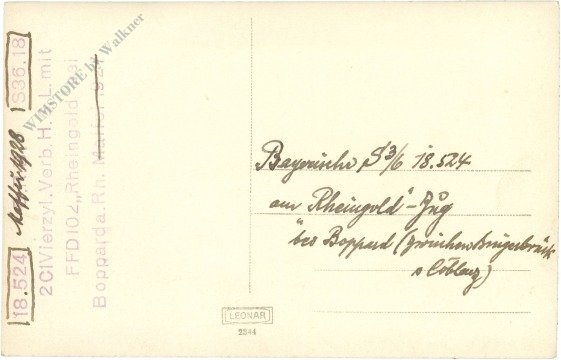 18.524 Messing 1928 S36.18
2C1Vierzyl.Verb.H. L.mit
FFD102„Rheingold" ei
Boppard a.Rh. 1921
WIMSTORE by Walkner
Bayerische S 3/6 18.524
am „Rheingold"-Zug
bei Boppard (zwischen Bingerbrück
Coblenz)
LEONAR
2344